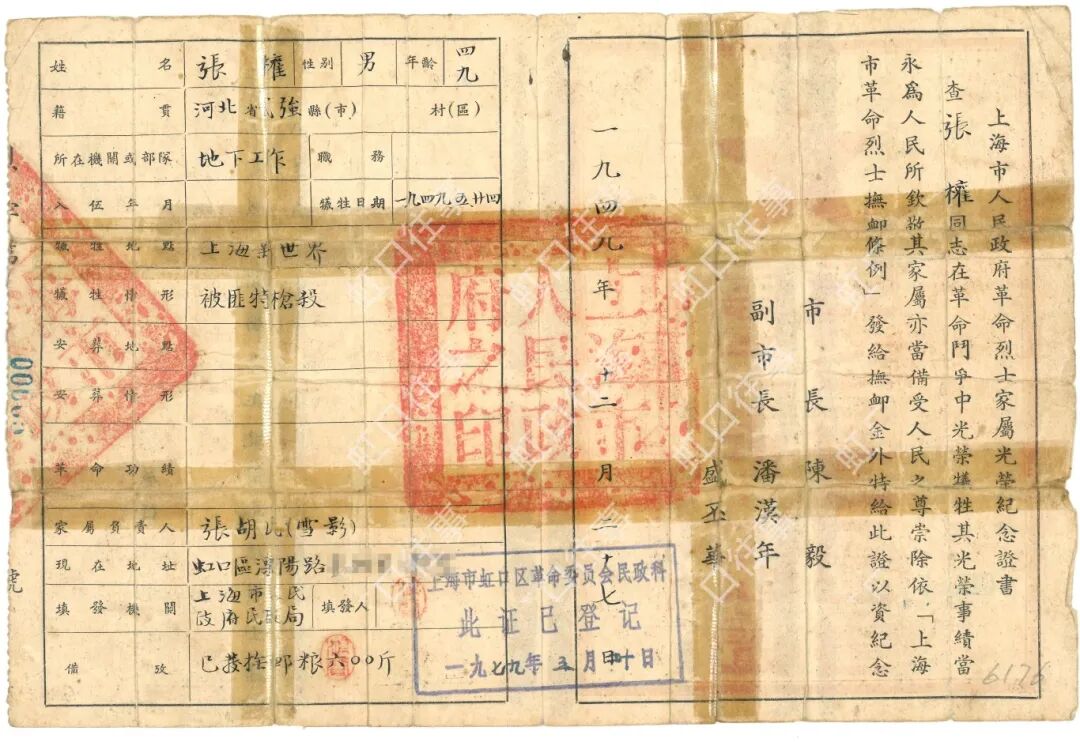 上海市人民政府革命烈士家屬光榮紀念證書
查張權同志在革命鬥爭中光榮犧牲其光榮事績當
永爲人民所欽敬其家屬亦當備受人民之尊崇除依「上海
市革命烈士撫卹條例」發給撫卹金外特給此證以資紀念
市長 陳毅
副市長 潘漢年
盛丕華
一九四九年十二月二十七日
上海市人民政府之印
姓名 張權 性别 男 年齡 四九
籍貫 河北省武強縣(市) 村(區)
所在機關或部隊 地下工作 職務
入伍年月 犧牲日期 一九四九五廿四
犧牲地點 上海新世界
犧牲情形 被匪特槍殺
安葬地點
安葬情形
革命功績
家屬負責人 張胡氏(雪影)
現在地址 虹口區溧陽路
填發機關 上海市人民政府民政局 填發人
備攷 已發撫卹粮六00斤
上海市虹口区革命委员会民政科
此证已登记
一九七九年 月 十日
號
6176
虹口往事